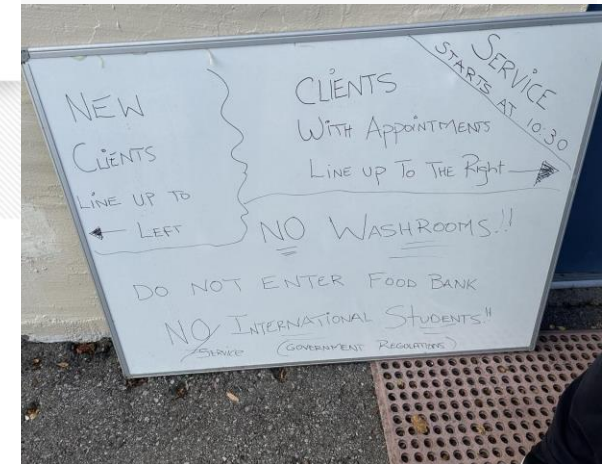 NEW
CLIENTS
LINE UP TO
LEFT
CLIENTS
WITH APPOINTMENTS
LINE UP TO THE Right
SERVICE
STARTS AT 10:30
NO WASHROOMS!!
DO NOT ENTER FOOD BANK
NO INTERNATIONAL STUDENTS!!
SERVICE (GOVERNMENT REGULATIONS)